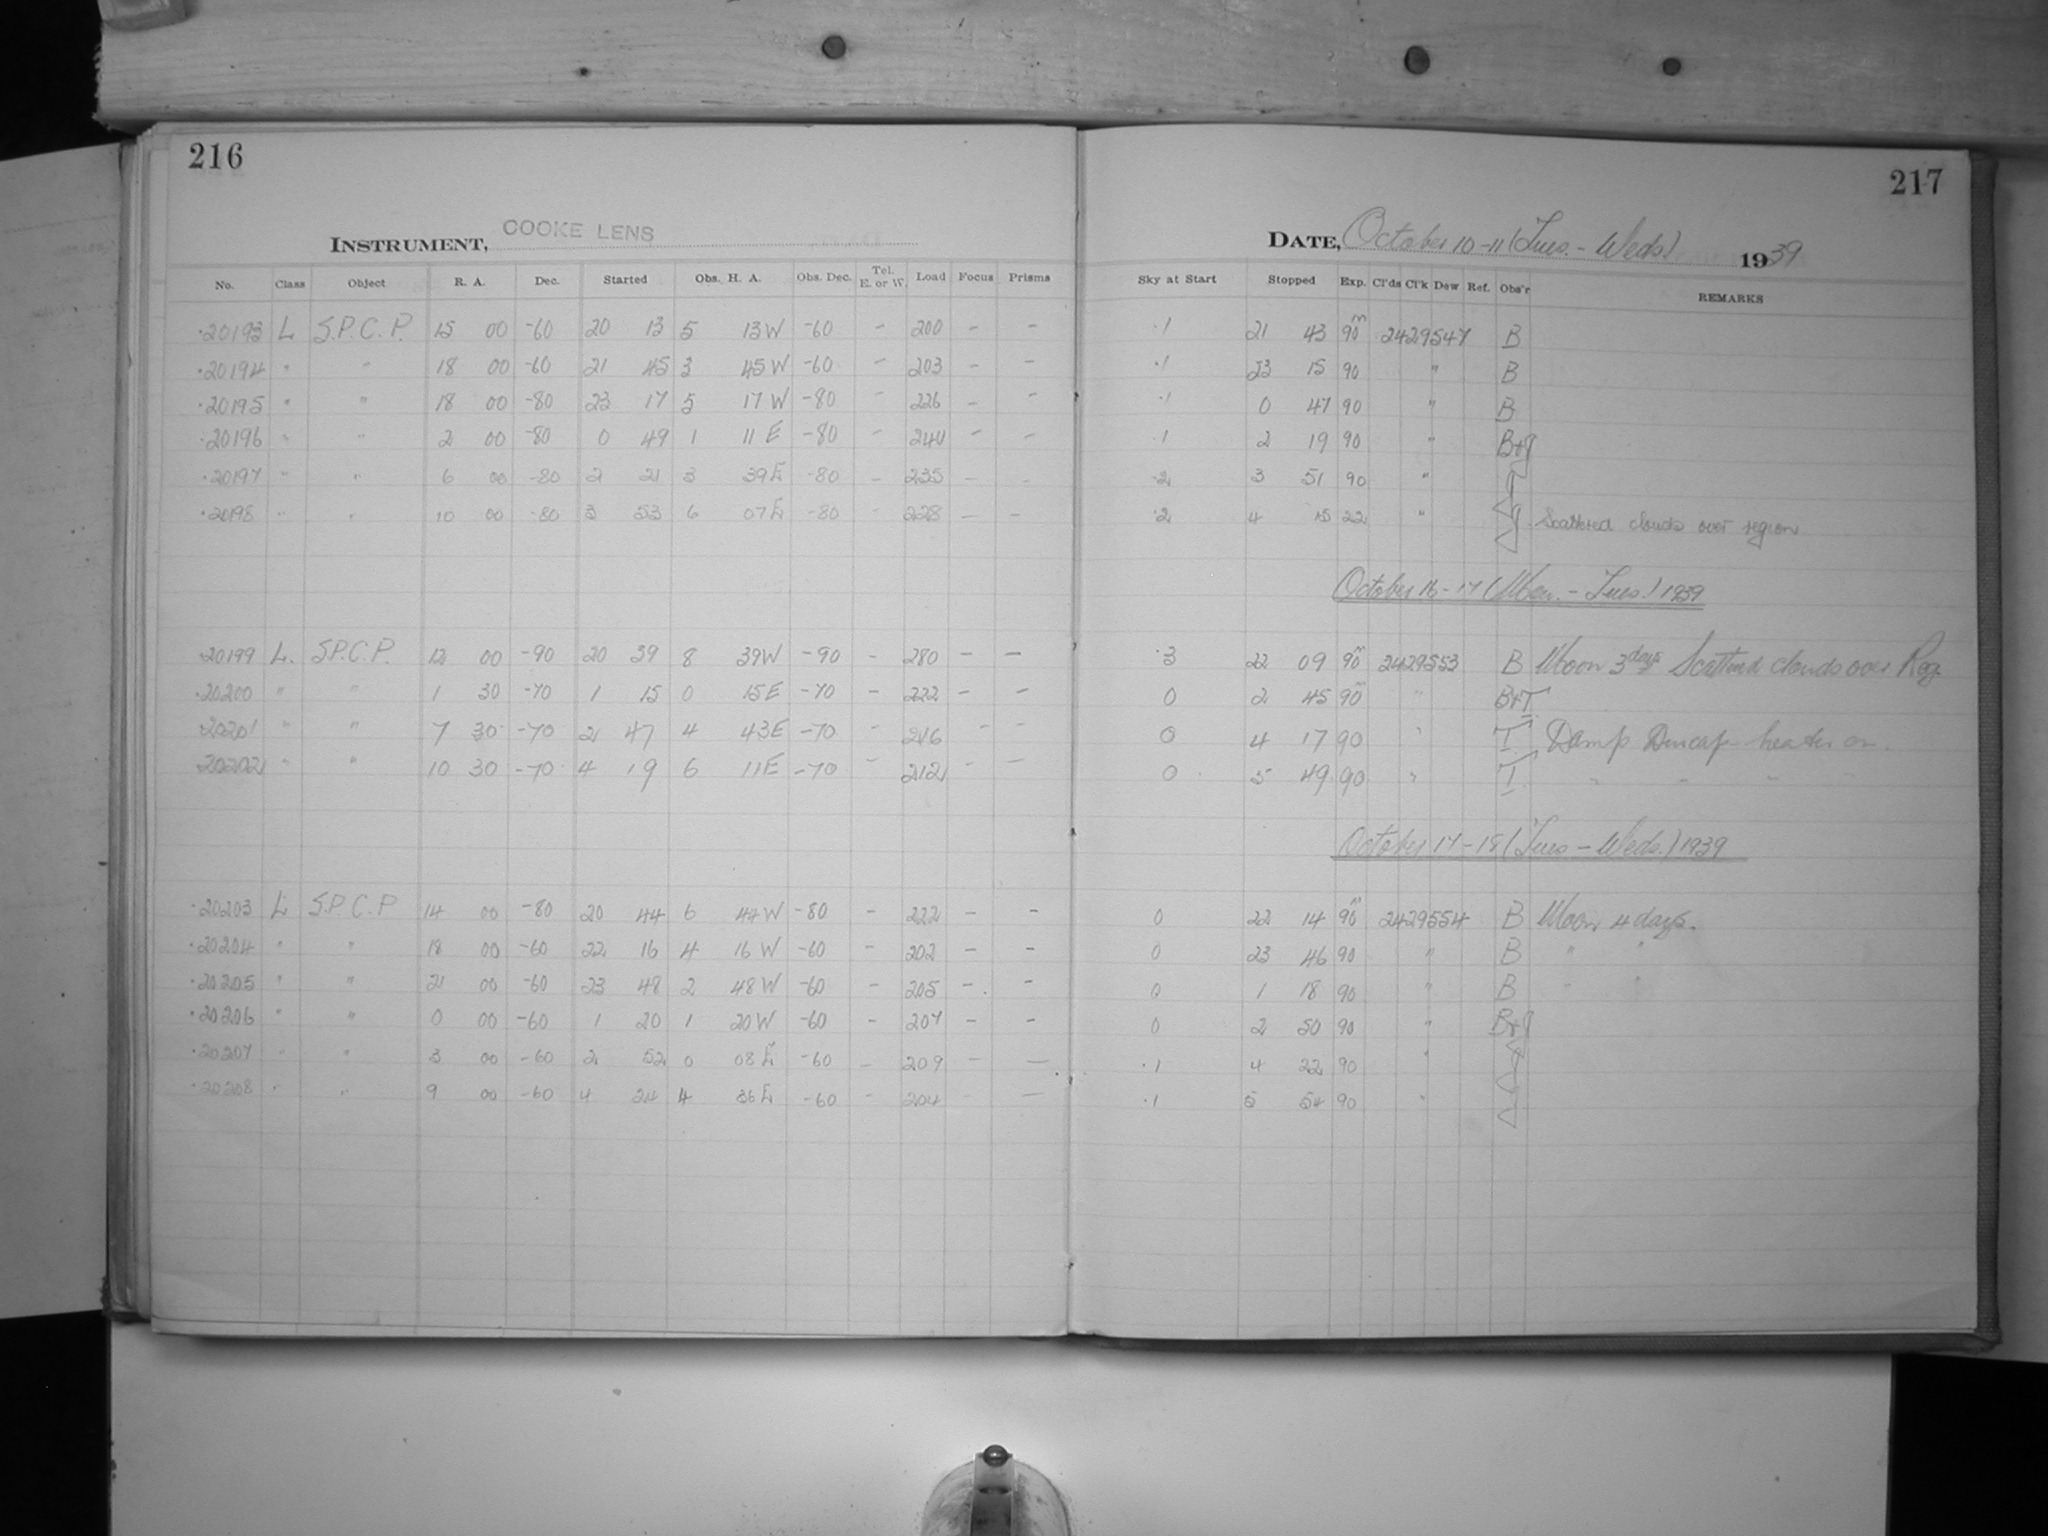 216
INSTRUMENT, COOKE LENS
No. Class Object R. A. Dec. Started Obs. H. A. Obs. Dec. Tel. E. or W. Load Focus Prisms
20193 L S.P.C.P. 15 00 -60 20 13 5 13 W -60 - 200 - -
20194 " " 18 00 -60 21 45 3 45 W -60 - 203 - -
20195 " " 18 00 -80 23 17 5 17 W -80 - 226 - -
20196 " " 2 00 -80 0 49 1 11 E -80 - 244 - -
20197 " " 6 00 -80 2 21 3 39 E -80 - 235 - -
20198 " " 10 00 -80 3 53 6 07 E -80 - 228 - -
20199 L. S.P.C.P. 12 00 -90 20 39 8 39W -90 - 280 - -
20200 " " 1 30 -70 1 15 0 15E -70 - 222 - -
20201 " " 7 30 -70 2 47 4 43E -70 - 216 - -
20202 " " 10 30 -70 4 19 6 11E -70 - 212 - -
20203 L S.P.C.P 14 00 -80 20 44 6 44 W -80 - 222 - -
20204 " " 18 00 -60 22 16 4 16 W -60 - 202 - -
20205 " " 21 00 -60 23 48 2 48 W -60 - 205 - -
20206 " " 0 00 -60 1 20 1 20 W -60 - 207 - -
20207 " " 3 00 -60 2 52 0 08 E -60 - 209 - -
20208 " " 9 00 -60 4 24 4 36 E -60 - 204 - -
217
DATE, October 10-11 (Tues. - Weds) 1939
Sky at Start Stopped Exp. Cl'ds Cl'k Dew Ref. Obs'r REMARKS
.1 21 43 90m 2429547 B
.1 23 15 90 " B
.1 0 47 90 " B
.1 2 19 90 "
.2 3 51 90 "
.2 4 15 22 " Scattered clouds over region
October 16-17 (Mon. - Tues.) 1939
.3 22 09 90m 2429553 B Moon 3 days Scattered clouds over Reg.
0 2 45 90m " B+T
0 4 17 90 " T Damp Dewcap heater on.
0 5 49 90 " T " " " "
October 17-18 (Tues - Weds.) 1939
0 22 14 90m 2429554 B Moon 4 days.
0 23 46 90 " B " "
0 1 18 90 " B " "
0 2 50 90 "
.1 4 22 90 "
.1 5 54 90 "